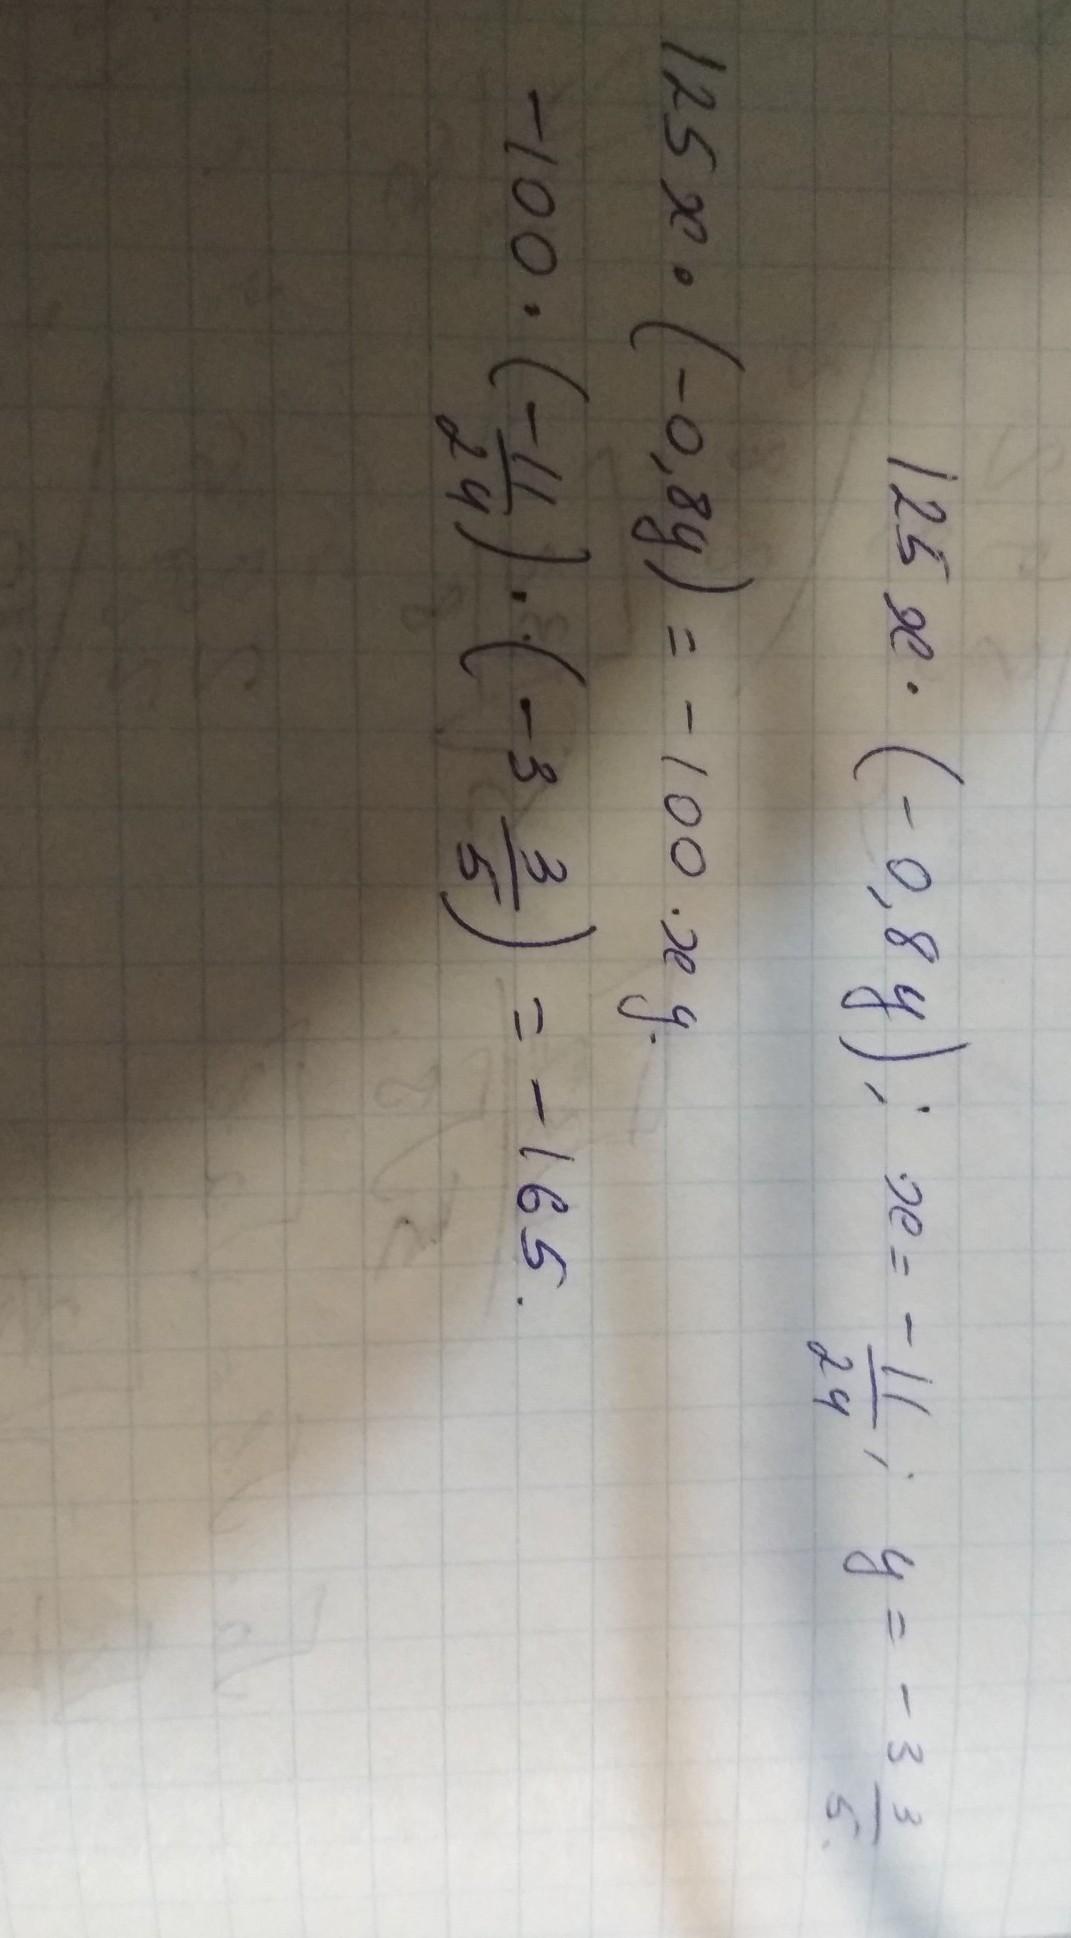 125x · (-0,8y); x = -11/24; y = -3 3/5.
125x · (-0,8y) = -100 · xy.
-100 · (-11/24) · (-3 3/5) = -165.